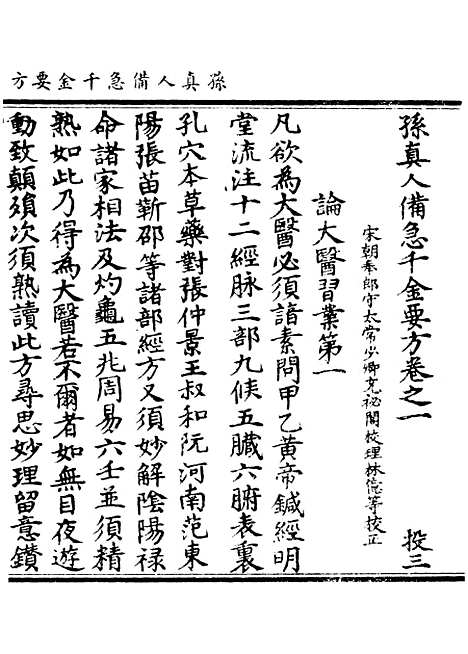 孫真人備急千金要方
孫真人備急千金要方卷之一 投三
宋朝奉郎守太常少卿充祕閣校理林億等校正
論大醫習業第一
凡欲為大醫必須諳素問甲乙黃帝鍼經明
堂流注十二經脉三部九候五臟六腑表裏
孔穴本草藥對張仲景王叔和阮河南范東
陽張苗靳邵等諸部經方又須妙解陰陽祿
命諸家相法及灼龜五兆周易六壬並須精
熟如此乃得為大醫若不爾者如無目夜遊
動致顛殞次須熟讀此方尋思妙理留意鑽